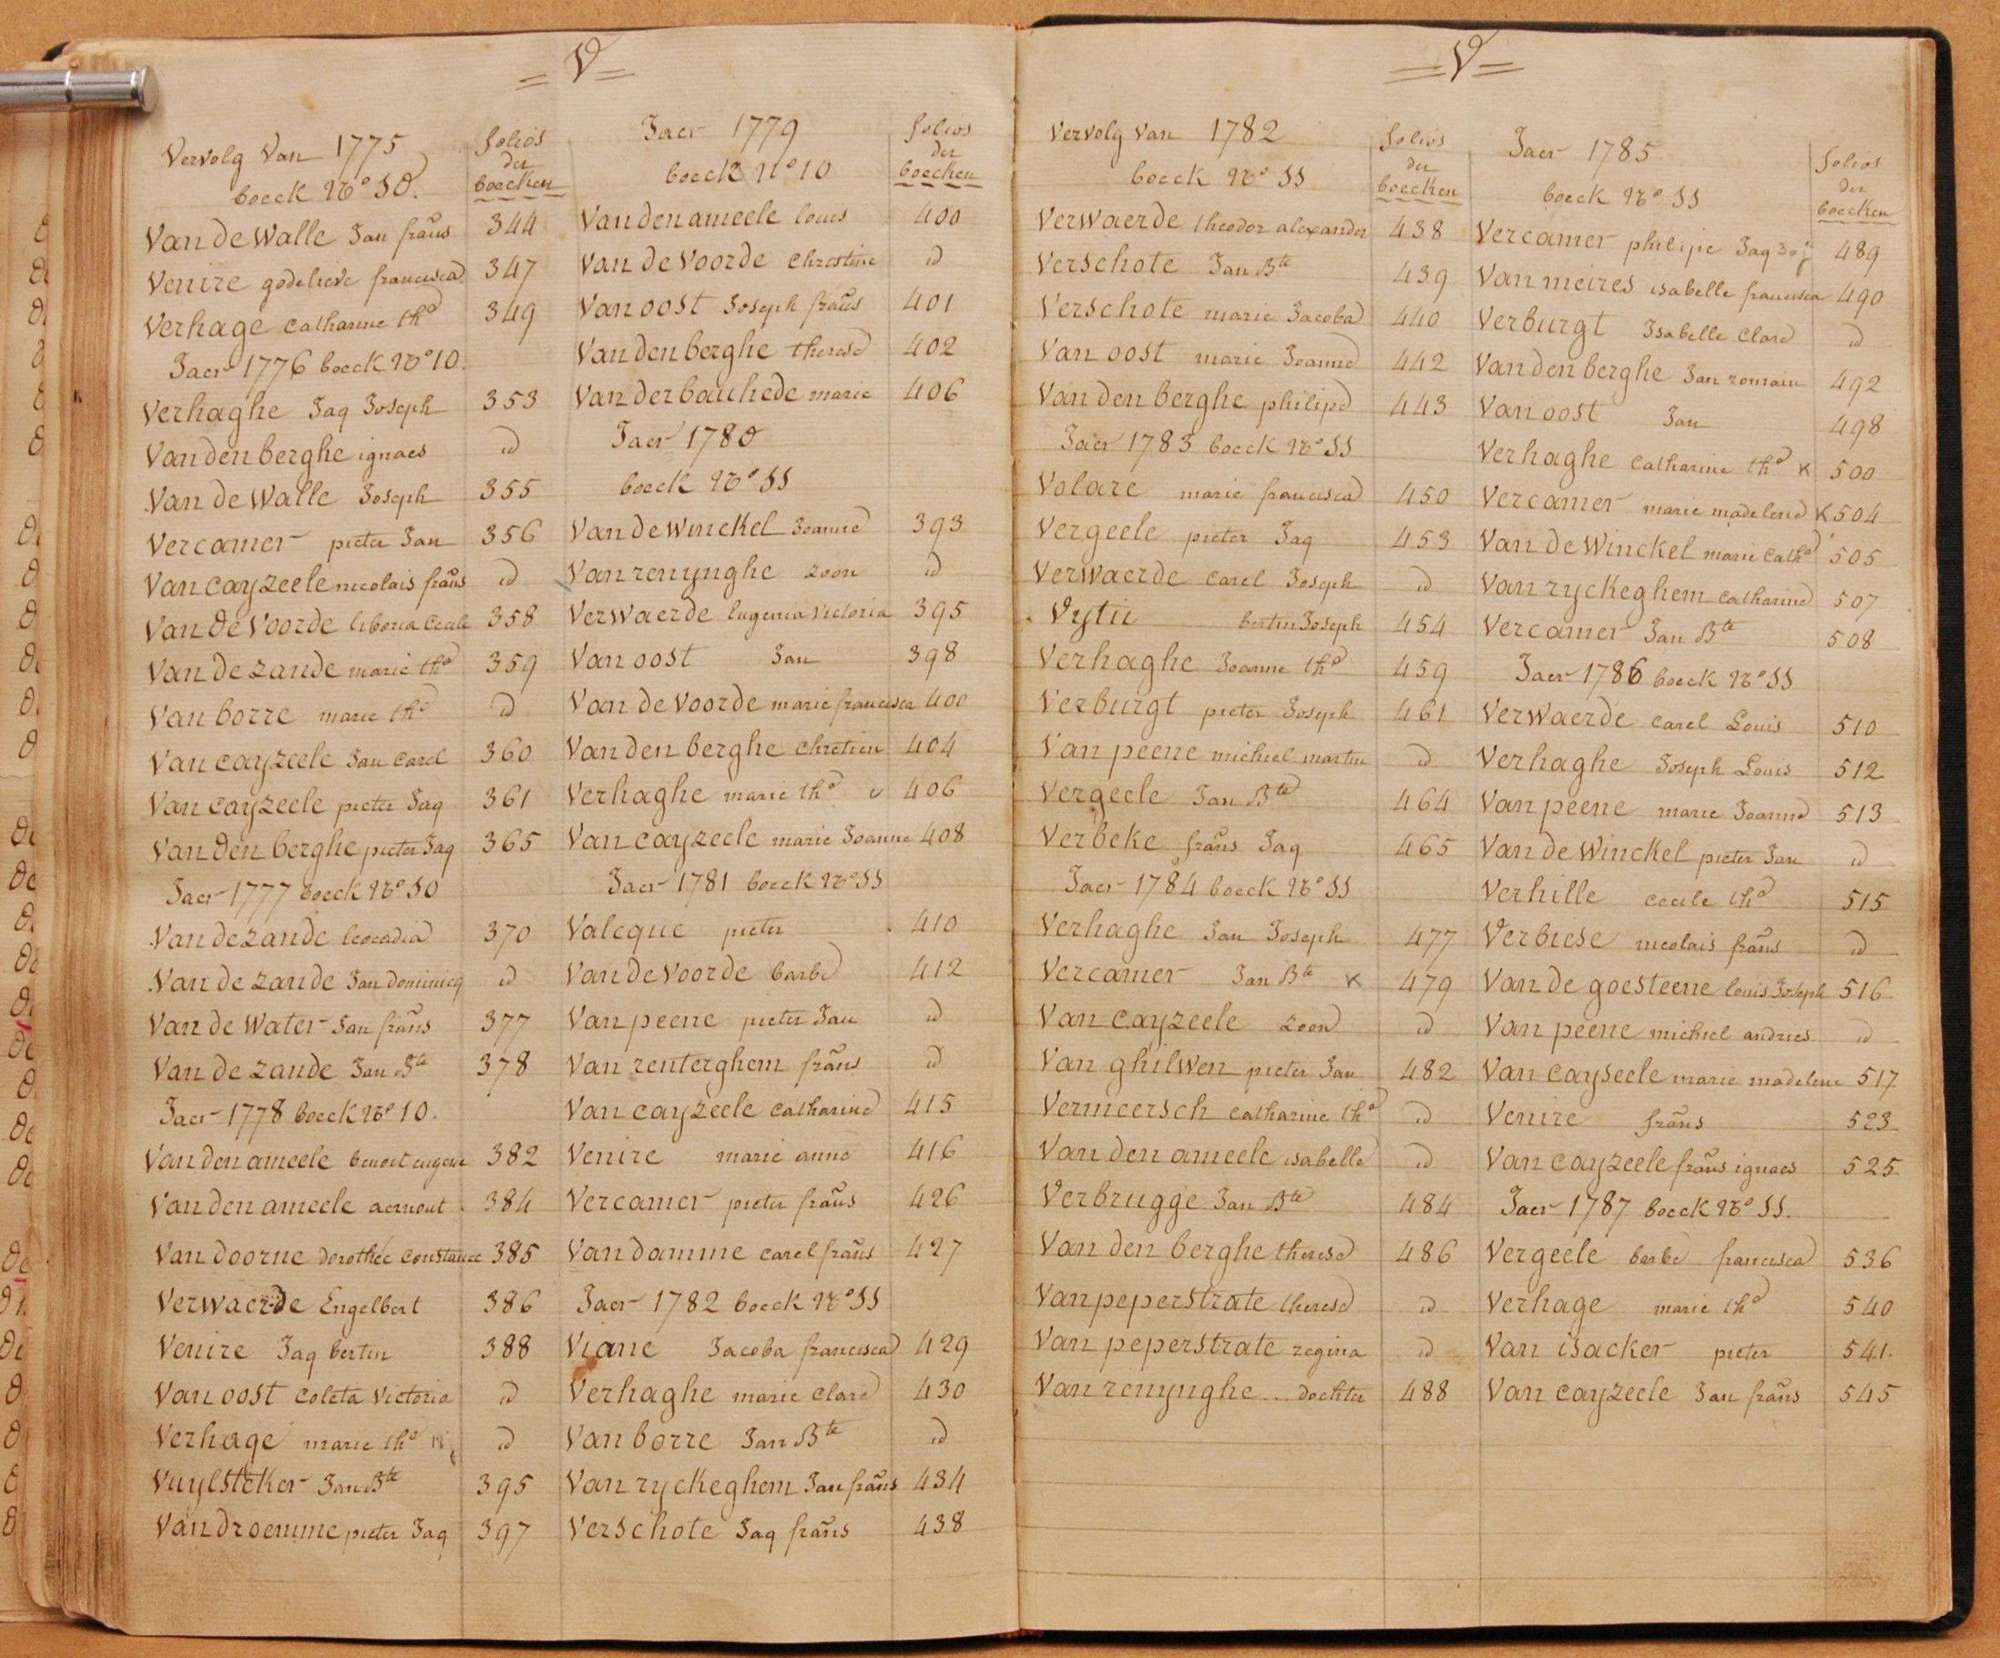 = V =
Vervolg Van 1775
boeck No 10.
folios
der
boecken
Van de Walle Jan frañs 344
Venire godelieve francisca 347
Verhage catharine thᵃ 349
Jaer 1776 boeck No 10.
Verhaghe Jaq Joseph 353
Van den berghe ignaes id
Van de Walle Joseph 355
Vercamer pieter Jan 356
Van cayzeele nicolais frañs id
Van de Voorde liboria Cecile 358
Van de zande marie thᵃ 359
Van borre marie thᵃ id
Van cayzeele Jan Carel 360
Van cayzeele pieter Jaq 361
Van den berghe pieter Jaq 365
Jaer 1777 boeck No 10
Van de zande leocadia 370
Van de zande Jan dominicq id
Van de Water Jan frañs 377
Van de zande Jan Bᵗᵉ 378
Jaer 1778 boeck No 10.
Van den ameele benoit eugene 382
Van den ameele aernout 384
Van doorne dorothée constance 385
Verwaerde Engelbert 386
Venire Jaq bertin 388
Van oost coleta Victoria id
Verhage marie thᵃ id
Vuylsteker Jan Bᵗᵉ 395
Van droemme pieter Jaq 397
Jaer 1779
boeck No 10
folios
der
boecken
Van den ameele louis 400
Van de Voorde christine id
Van oost Joseph frañs 401
Van den berghe therese 402
Van der bauhede marie 406
Jaer 1780
boeck No 11
Van de Winckel Joanne 393
Van renynghe zoon id
Verwaerde Eugenia Victoria 395
Van oost Jan 398
Van de Voorde marie francisca 400
Van den berghe chretien 404
Verhaghe marie thᵃ 406
Van cayzeele marie Joanne 408
Jaer 1781 boeck No 11
Valcque pieter 410
Van de Voorde barbe 412
Van peene pieter Jan id
Van renterghem frañs id
Van cayzeele catharine 415
Venire marie anne 416
Vercamer pieter frañs 426
Van damme carel frañs 427
Jaer 1782 boeck No 11
Viane Jacoba francisca 429
Verhaghe marie clare 430
Van borre Jan Bᵗᵉ id
Van ryckeghem Jan frañs 434
Verschote Jaq frañs 438
= V =
Vervolg Van 1782
boeck No 11
folios
der
boecken
Verwaerde theodor alexander 438
Verschote Jan Bᵗᵉ 439
Verschote marie Jacoba 440
Van oost marie Joanne 442
Van den berghe philipe 443
Jaer 1783 boeck No 11
Volare marie francisca 450
Vergeele pieter Jaq 453
Verwaerde Carel Joseph id
bertin Joseph 454
Verhaghe Joanne thᵃ 459
Verburgt pieter Joseph 461
Van peene michiel martin id
Vergeele Jan Bᵗᵉ 464
Verbeke frañs Jaq 465
Jaer 1784 boeck No 11
Verhaghe Jan Joseph 477
Vercamer Jan Bᵗᵉ x 479
Van cayzeele zoon id
Van ghilwen pieter Jan 482
Vermeersch catharine thᵃ id
Van den ameele isabelle id
Verbrugge Jan Bᵗᵉ 484
Van den berghe therese 486
Van peperstrate therese id
Van peperstrate regina id
Van renynghe .. dochter 488
Jaer 1785
boeck No 11
folios
der
boecken
Vercamer philipe Jaq 489
Van meires isabelle francisca 490
Verburgt Isabelle Clare id
Van den berghe Jan romain 492
Van oost Jan 498
Verhaghe Catharine thᵃ x 500
Vercamer marie madelene x 504
Van de Winckel marie cathᵃ 505
Van ryckeghem catharine 507
Vercamer Jan Bᵗᵉ 508
Jaer 1786 boeck No 11
Verwaerde carel Louis 510
Verhaghe Joseph Louis 512
Van peene marie Joanne 513
Van de Winckel pieter Jan id
Verhille cecile thᵃ 515
Verbiese nicolais frañs id
Van de goesteene louis Joseph 516
Van peene michiel andries id
Van cayseele marie madelene 517
Venire frañs 523
Van cayzeele frañs ignaes 525
Jaer 1787 boeck No 11.
Vergeele barbe francisca 536
Verhage marie thᵃ 540
Van isacker pieter 541.
Van cayzeele Jan frañs 545